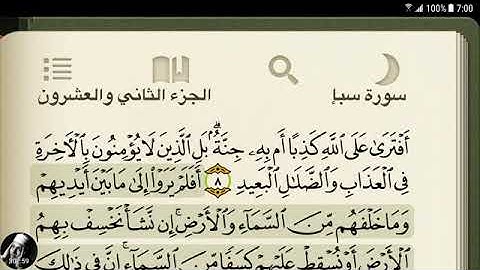 100% 7:00
سورة سبإ
الجزء الثاني والعشرون
أَفْتَرَىٰ عَلَى ٱللَّهِ كَذِبًا أَم بِهِۦ جِنَّةٌۢ ۗ بَلِ ٱلَّذِينَ لَا يُؤْمِنُونَ بِٱلْأَخِرَةِ
فِى ٱلْعَذَابِ وَٱلضَّلَٰلِ ٱلْبَعِيدِ ٨ أَفَلَمْ يَرَوْا۟ إِلَىٰ مَا بَيْنَ أَيْدِيهِمْ
وَمَا خَلْفَهُم مِّنَ ٱلسَّمَآءِ وَٱلْأَرْضِ ۚ إِن نَّشَأْ نَخْسِفْ بِهِمُ
ٱلْأَرْضَ أَوْ نُسْقِطْ عَلَيْهِمْ كِسَفًا مِّنَ ٱلسَّمَآءِ ۚ إِنَّ فِى ذَٰلِكَ